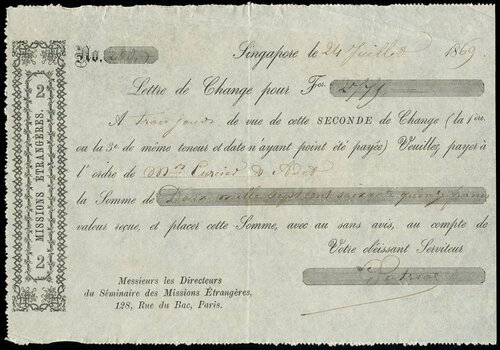 2 MISSIONS ÉTRANGÈRES. 2
No. 200
Singapore le 24 Juillet 1869
Lettre de Change pour Fcs. 2775
A trois jours de vue de cette SECONDE de Change (la 1re.
ou la 3e de même teneur et date n'ayant point été payée) Veuillez payer à
l'ordre de Mrs Cursier & Adet
la Somme de Deux mille sept cent soixante quinze francs
valeur reçue, et placer cette Somme, avec au sans avis, au compte de
Votre obeissant Serviteur
Messieurs les Directeurs
du Séminaire des Missions Étrangères.
128, Rue du Bac, Paris.